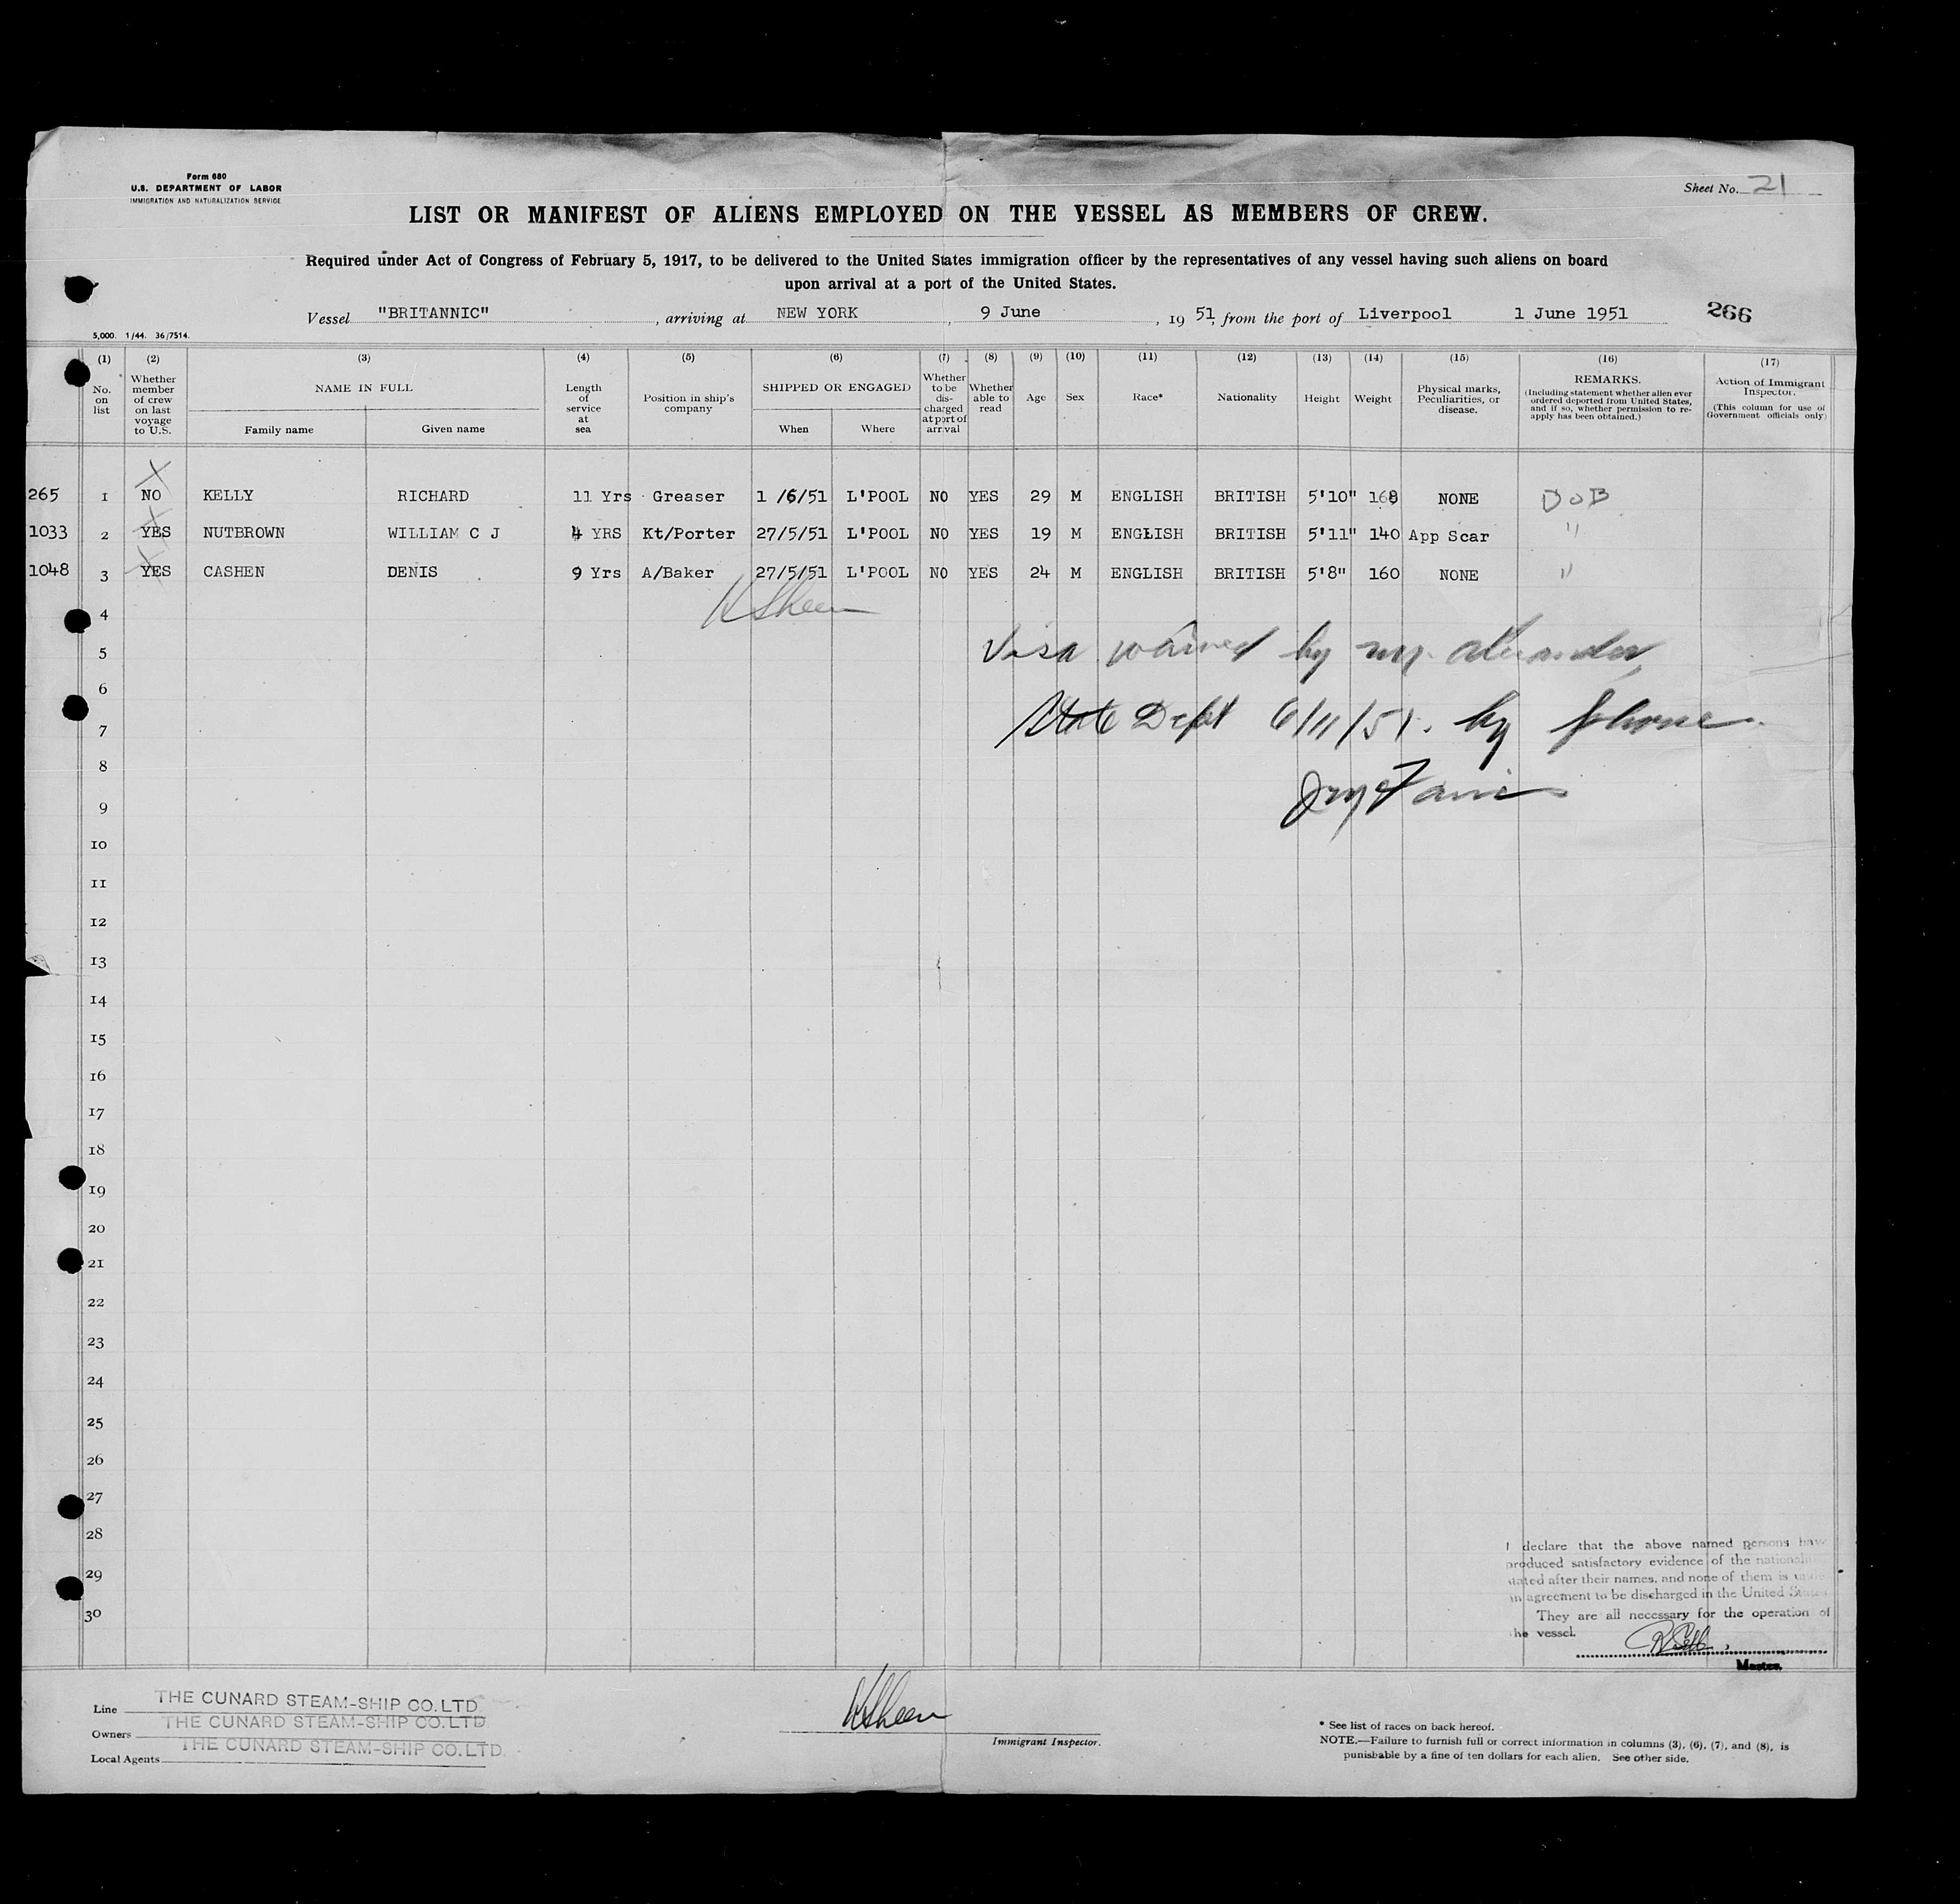 Form 680
U.S. DEPARTMENT OF LABOR
IMMIGRATION AND NATURALIZATION SERVICE
Sheet No. 21
LIST OR MANIFEST OF ALIENS EMPLOYED ON THE VESSEL AS MEMBERS OF CREW.
Required under Act of Congress of February 5, 1917, to be delivered to the United States immigration officer by the representatives of any vessel having such aliens on board
upon arrival at a port of the United States.
Vessel "BRITANNIC", arriving at NEW YORK, 9 June, 19 51, from the port of Liverpool 1 June 1951 266
5,000. 1/44. 36/7514.
(1) (2) (3) (4) (5) (6) (7) (8) (9) (10) (11) (12) (13) (14) (15) (16) (17)
No. on list
Whether member of crew on last voyage to U.S.
NAME IN FULL
Family name Given name
Length of service at sea
Position in ship's company
SHIPPED OR ENGAGED
When Where
Whether to be discharged at port of arrival
Whether able to read
Age
Sex
Race*
Nationality
Height
Weight
Physical marks, Peculiarities, or disease.
REMARKS.
(Including statement whether alien ever ordered deported from United States, and if so, whether permission to re-apply has been obtained.)
Action of Immigrant Inspector.
(This column for use of Government officials only)
265 1 NO KELLY RICHARD 11 Yrs Greaser 1 /6/51 L'POOL NO YES 29 M ENGLISH BRITISH 5'10" 168 NONE DOB
1033 2 YES NUTBROWN WILLIAM C J 4 YRS Kt/Porter 27/5/51 L'POOL NO YES 19 M ENGLISH BRITISH 5'11" 140 App Scar "
1048 3 YES CASHEN DENIS 9 Yrs A/Baker 27/5/51 L'POOL NO YES 24 M ENGLISH BRITISH 5'8" 160 NONE "
4
5 Visa waived by Mr. Alexander,
6
7 State Dept 6/11/51. by phone.
8
9
10
11
12
13
14
15
16
17
18
19
20
21
22
23
24
25
26
27
28
29
30
I declare that the above named persons have
produced satisfactory evidence of the
stated after their names, and none of them is
an agreement to be discharged in the United States
They are all necessary for the operation of
the vessel.
Master.
Line THE CUNARD STEAM-SHIP CO. LTD
Owners THE CUNARD STEAM-SHIP CO. LTD.
Local Agents THE CUNARD STEAM-SHIP CO. LTD.
Immigrant Inspector.
* See list of races on back hereof.
NOTE.—Failure to furnish full or correct information in columns (3), (6), (7), and (8), is
punishable by a fine of ten dollars for each alien. See other side.